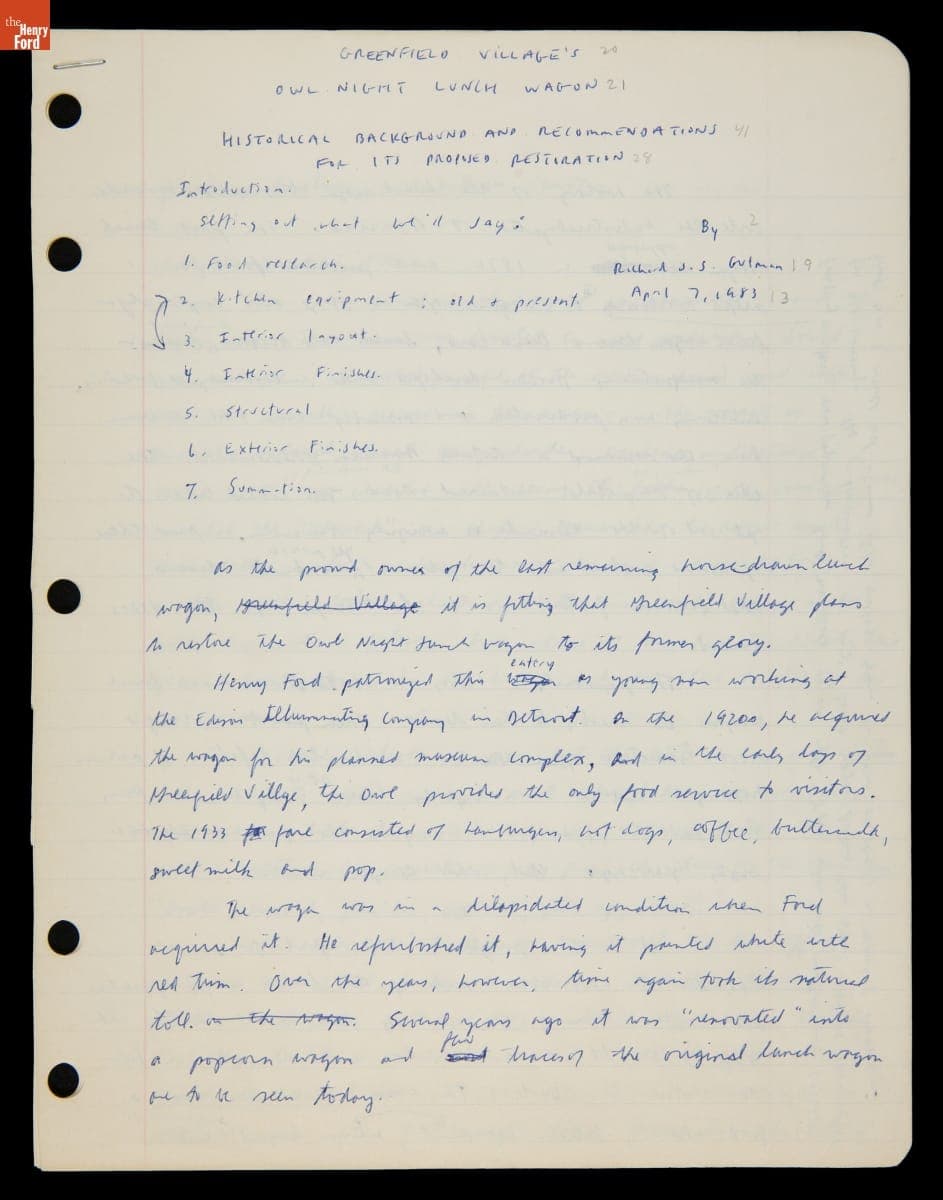 the Henry Ford
GREENFIELD VILLAGE'S 20
OWL NIGHT LUNCH WAGON 21
HISTORICAL BACKGROUND AND RECOMMENDATIONS 41
FOR ITS PROPOSED RESTORATION 28
Introduction:
Setting out what we'll say:
By 2
1. Food research.
Richard J.S. Gutman 19
2. Kitchen equipment: old & present.
April 7, 1983 13
3. Interior layout.
4. Interior Finishes.
5. Structural
6. Exterior Finishes.
7. Summation.
As the proud owner of the last remaining horse-drawn lunch
wagon, Greenfield Village it is fitting that Greenfield Village plans
to restore the Owl Night Lunch wagon to its former glory.
eatery
Henry Ford patronized this wagon as young man working at
the Edison Illuminating Company in Detroit. In the 1920s, he acquired
the wagon for his planned museum complex, and in the early days of
Greenfield Village, the Owl provided the only food service to visitors.
The 1933 fare consisted of hamburgers, hot dogs, coffee, buttermilk,
sweet milk and pop.
The wagon was in a dilapidated condition when Ford
acquired it. He refurbished it, having it painted white with
red trim. Over the years, however, time again took its natural
toll. on the wagon. Several years ago it was "renovated" into
few
a popcorn wagon and traces of the original lunch wagon
are to be seen today.